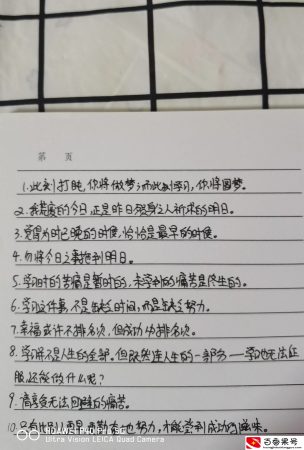 第 页
1.此刻打盹,你将做梦;而此刻学习,你将圆梦。
2.我荒废的今日,正是昨日殒身之人祈求的明日。
3.觉得为时已晚的时候,恰恰是最早的时候。
4.勿将今日之事拖到明日。
5.学习时的苦痛是暂时的,未学到的痛苦是终生的。
6.学习这件事,不是缺乏时间,而是缺乏努力。
7.幸福或许不排名次,但成功必排名次。
8.学习并不是人生的全部。但既然连人生的一部分——学习也无法征
服,还能做什么呢?
9.请享受无法回避的痛苦。
10.只有比别人更早、更勤奋地努力,才能尝到成功的滋味。
HUAWEI P30 PRO
Ultra Vision LEICA Quad Camera
百泰号